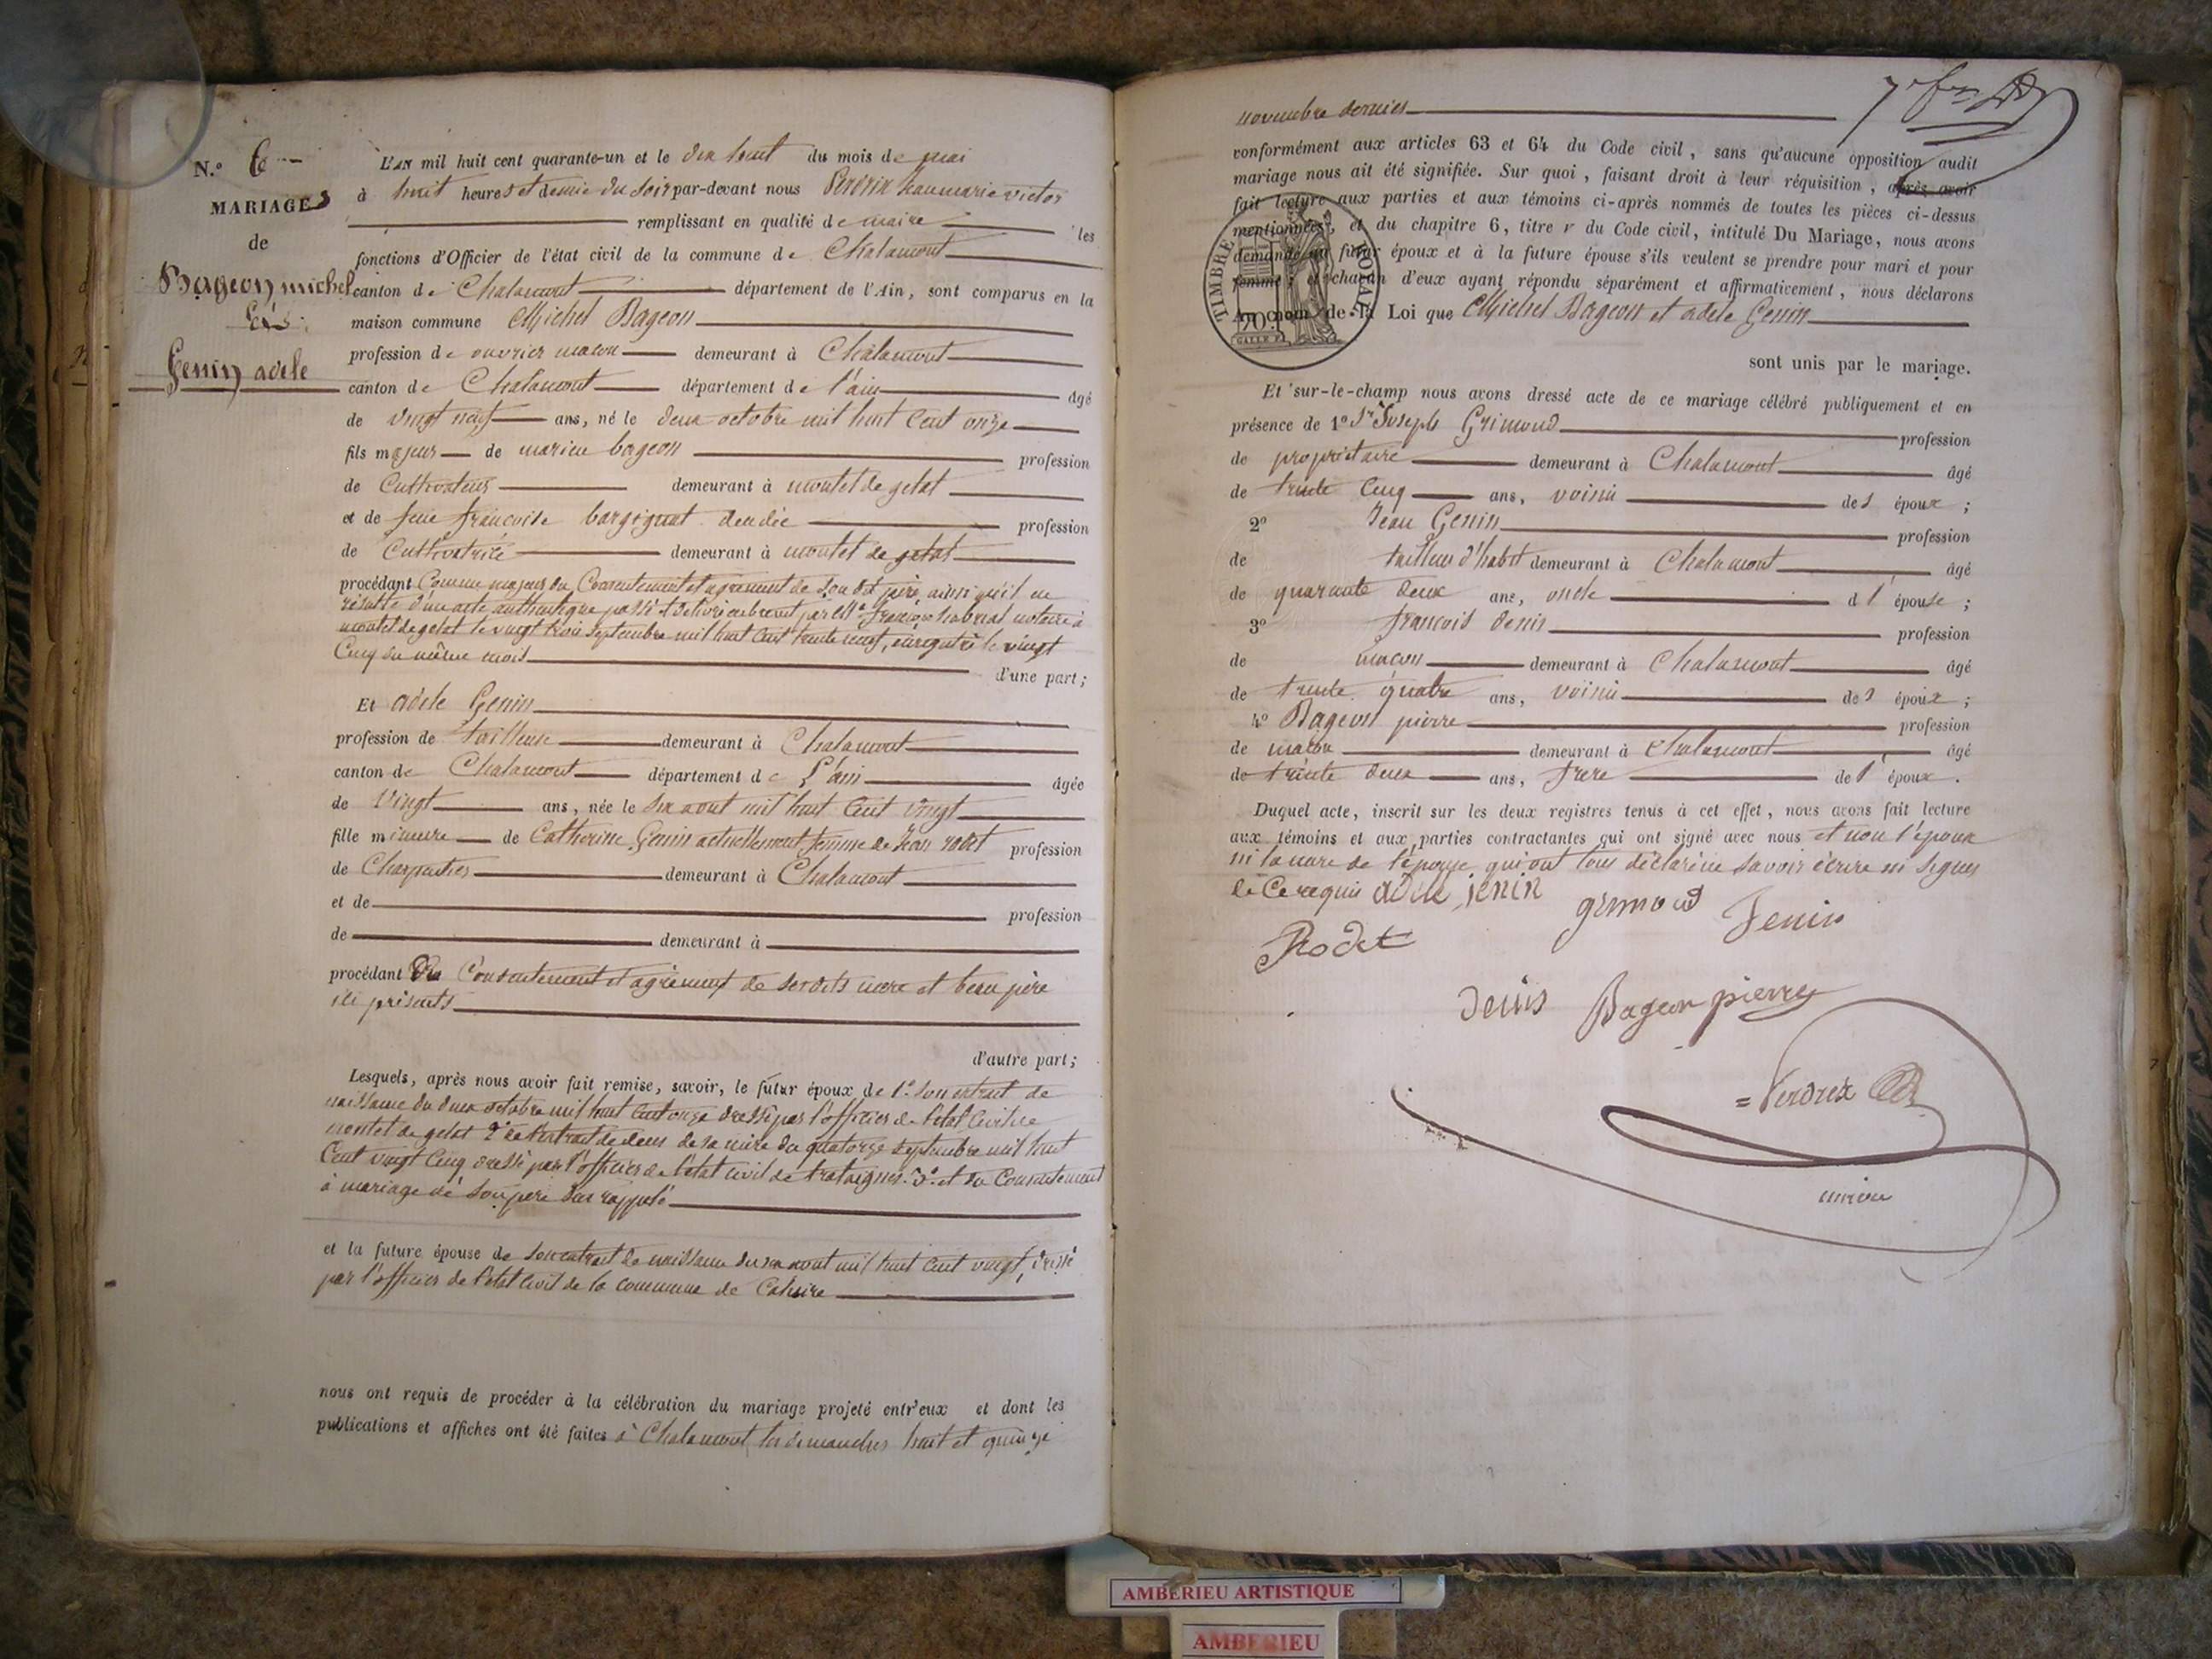 N.o 6
MARIAGES
de
Bageon michel
Et
Genin adele
L'AN mil huit cent quarante-un et le dix huit du mois de mai
à huit heures et demie du soir par-devant nous marie victor
remplissant en qualité de maire les
fonctions d'Officier de l'état civil de la commune de Chalamont
canton de Chalamont département de l'Ain, sont comparus en la
maison commune Michel Bageon
profession de ouvrier maçon demeurant à Chalamont
canton de Chalamont département de l'ain âgé
de vingt neuf ans, né le deux octobre mil huit cent onze
fils majeur de marien bageon profession
de Cultivateur demeurant à montel de gelat
et de feue françoise profession
de Cultivatrice demeurant à montel de gelat
procédant Comme majeur du Consentement et agrément de son dit père ainsi qu'il en
résulte d'un acte authentique passé et délivré en brevet par Me françois notaire à
montel de gelat le vingt trois septembre mil huit cent trente neuf, enregistré le vingt
Cinq du même mois
d'une part;
Et adele Genin
profession de tailleuse demeurant à Chalamont
canton de Chalamont département de l'ain âgée
de Vingt ans, née le six aout mil huit Cent vingt
fille mineure de Catherine Genin actuellement femme de Jean rodet profession
de Charpentier demeurant à Chalamont
et de profession
de demeurant à
procédant Du Consentement et agrément de ses dits mere et beau père
ici présents
d'autre part;
Lesquels, après nous avoir fait remise, savoir, le futur époux de 1.o son extrait de
naissance du deux octobre mil huit Cent onze dressé par l'officier de l'état Civil de
montel de gelat 2.o de l'extrait de deces de sa mère du quatorze septembre mil huit
Cent vingt Cinq dressé par l'officier de l'état civil de 3.o et du Consentement
à mariage de son pere sus rappelé
et la future épouse de son extrait de naissance du six aout mil huit cent vingt, dressé
par l'officier de l'état Civil de la commune de Caluire
nous ont requis de procéder à la célébration du mariage projeté entr'eux et dont les
publications et affiches ont été faites à Chalamont les dimanches huit et quinze
novembre dernier
conformément aux articles 63 et 64 du Code civil, sans qu'aucune opposition audit
mariage nous ait été signifiée. Sur quoi, faisant droit à leur réquisition, après avoir
fait lecture aux parties et aux témoins ci-après nommés de toutes les pièces ci-dessus
mentionnées, et du chapitre 6, titre v du Code civil, intitulé Du Mariage, nous avons
demandé au futur époux et à la future épouse s'ils veulent se prendre pour mari et pour
femme; et chacun d'eux ayant répondu séparément et affirmativement, nous déclarons
Au nom de la Loi que Michel Bageon et adele Genin
TIMBRE ROYAL
sont unis par le mariage.
Et sur-le-champ nous avons dressé acte de ce mariage célébré publiquement et en
présence de 1o Sr Joseph Grimoud profession
de propriétaire demeurant à Chalamont âgé
de trente Cinq ans, voisin des époux;
2o Jean Genin profession
de tailleur d'habit demeurant à Chalamont âgé
de quarante deux ans, oncle d l' épouse;
3o françois denis profession
de maçon demeurant à Chalamont âgé
de trente quatre ans, voisin des époux;
4o Bageon pierre profession
de maçon demeurant à Chalamont âgé
de trente deux ans, frere de l' époux.
Duquel acte, inscrit sur les deux registres tenus à cet effet, nous avons fait lecture
aux témoins et aux parties contractantes qui ont signé avec nous et non l'époux
ni la mere de l'épouse qui ont tous déclaré ne savoir écrire ni signer
de Ce requis adele jenin grimoud Jenin
Rodet
Denis Bageon pierre
maire
AMBERIEU ARTISTIQUE
AMBERIEU